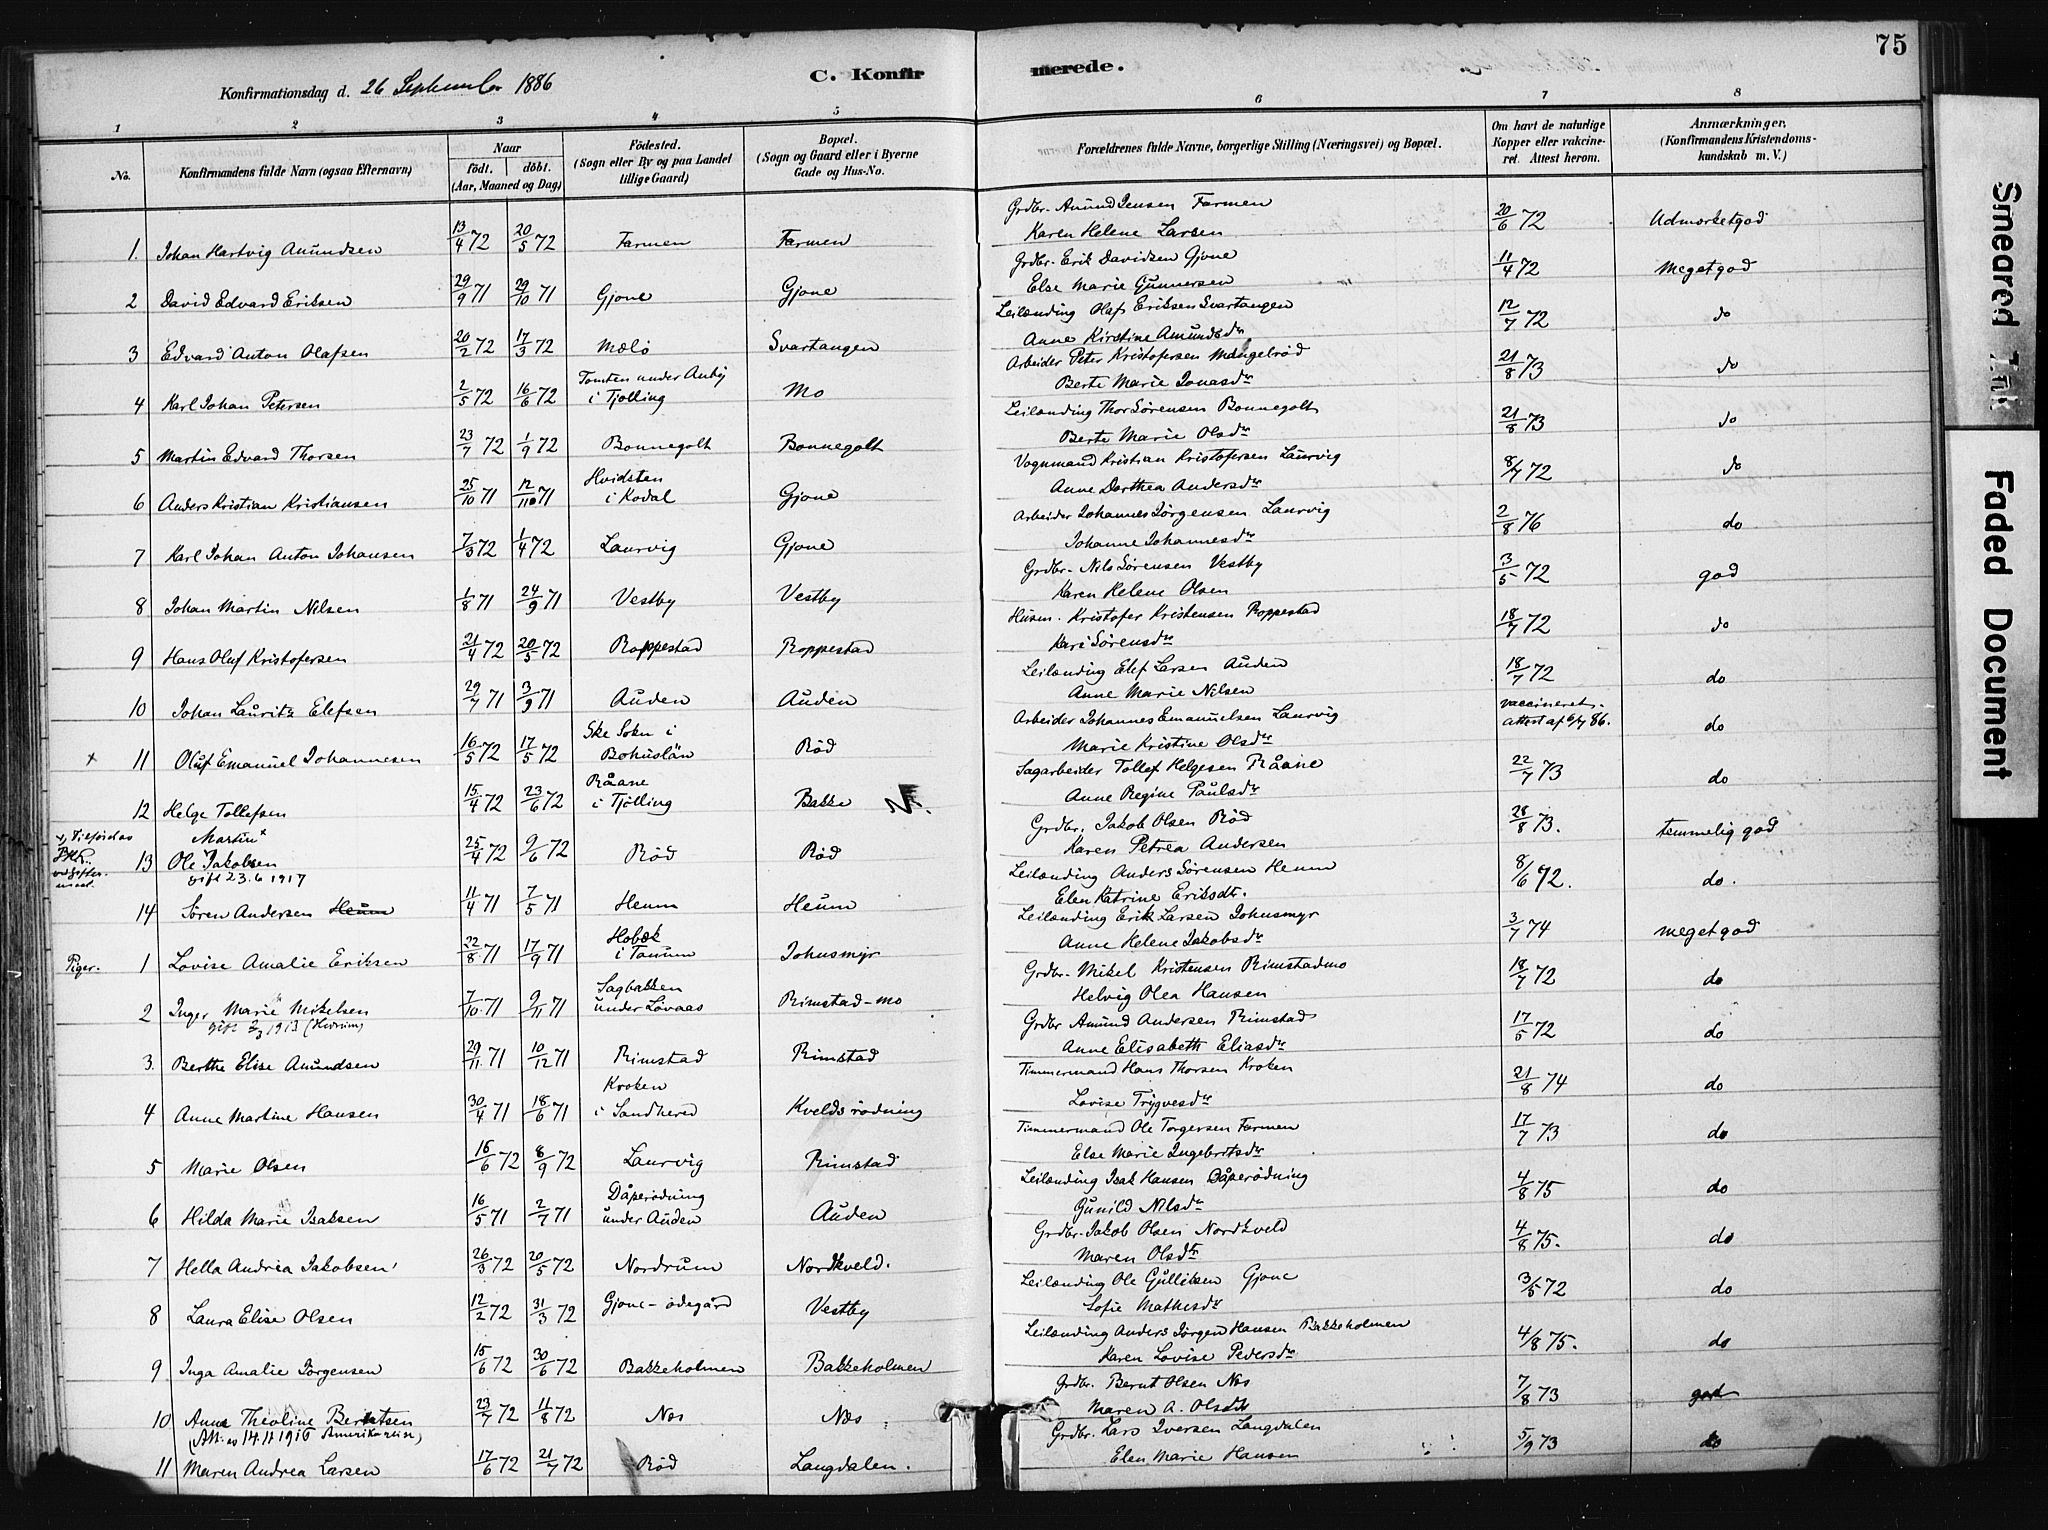 75
C. Konfirmerede.
Konfirmationsdag d. 26 September 1886
1 2 3 4 5 6 7 8
No.
Konfirmandens fulde Navn (ogsaa Efternavn)
Naar
födt. döbt.
(Aar, Maaned og Dag)
Födested.
(Sogn eller By og paa Landet
tillige Gaard)
Bopæl.
(Sogn og Gaard eller i Byerne
Gade og Hus-No.
Forældrenes fulde Navne, borgerlige Stilling (Næringsvei) og Bopæl.
Om havt de naturlige
Kopper eller vakcine-
ret. Attest herom.
Anmærkninger,
(Konfirmandens Kristendoms-
kundskab m. V.)
Smeared Ink
Faded Document
Grdbr. Amund Jensen Farmen
1. Johan Hartvig Amundsen 13/4 72 20/5 72 Farmen Farmen Karen Helene Larsen 20/6 72 Udmerketgod
Grdbr. Erik Davidsen Gjone
2 David Edvard Eriksen 29/9 71 29/10 71 Gjone Gjone Else Marie Gunnersen 11/4 72 Megetgod
Leilænding Olaf Eriksen Svartangen
3 Edvard Anton Olafsen 20/2 72 17/3 72 Mælø Svartangen Anne Kirstine Amundsdr 12/7 72 do
Arbeider Peter Kristofersen Mangelrød
4 Karl Johan Petersen 2/5 72 16/6 72 Tomten under Auby i Tjølling Mo Berte Marie Jonasdr 21/8 73 do
Leilænding Thor Sørensen Bonnegolt
5 Martin Edvard Thorsen 23/7 72 1/9 72 Bonnegolt Bonnegolt Berte Marie Olsdr 21/8 73 do
Vognmand Kristian Kristofersen Laurvig
6 Anders Kristian Kristiansen 25/10 71 12/11 71 Hvidsten i Kodal Gjone Anne Dorthea Andersdr 8/7 72 do
Arbeider Johannes Jörgensen Laurvig
7 Karl Johan Anton Johansen 7/3 72 1/4 72 Laurvig Gjone Johanne Johannesdr 2/8 76 do
Grdbr. Nils Sörensen Vestby
8 Johan Martin Nilsen 1/8 71 24/9 71 Vestby Vestby Karen Helene Olsen 3/5 72 god
Husm. Kristofer Kristensen Roppestad
9 Hans Oluf Kristofersen 21/4 72 20/5 72 Roppestad Roppestad Kari Sörensdr 18/7 72 do
Leilænding Elef Larsen Auden
10 Johan Lauritz Elefsen 29/7 71 3/9 71 Auden Auden Anne Marie Nilsen 18/7 72 do
Arbeider Johannes Emanuelsen Laurvig
+ 11 Oluf Emanuel Johannesen 16/5 72 17/5 72 Ske Sokn i Bohuslän Röd Marie Kristine Olsdr vaccineret. attest af 6/7 86. do
Sagarbeider Tollef Helgesen Råane
12 Helge Tollefsen 15/4 72 23/6 72 Råane i Tjölling Bakke N. Anne Regine Paulsdr 22/7 73 do
+) Tilføiet
Grdbr. Jakob Olsen Röd
13 Ole Martin+ Jakobsen 25/4 72 9/6 72 Röd Röd Karen Petrea Andersen 28/8 73. temmelig god
gift 23.6 1917
Leilænding Anders Sörensen Heum
14 Søren Andersen Heum 11/4 71 7/5 71 Heum Heum Elen Katrine Eriksdtr. 8/6 72. do.
Leilænding Erik Larsen Johusmyr
Piger. 1 Lovise Amalie Eriksen 22/8 71 17/9 71 Hobæk i Tanum Johusmyr Anne Helene Jakobsdr 3/7 74 megetgod
Grdbr. Mikel Kristensen Rimstadmo
2 Inger Marie Mikelsen 7/10 71 9/11 71 Sagbakken under Lövaas Rimstad-mo Helvig Olea Hansen 18/7 72 do
gift 2/3 1913 (Hedrum)
Grdbr Amund Andersen Rimstad
3. Berthe Elise Amundsen 29/11 71 10/12 71 Rimstad Rimstad Anne Elisabeth Eliasdr 17/5 72 do
Timmermand Hans Thorsen Kroken
4 Anne Martine Hansen 30/4 71 18/6 71 Kroken i Sandherred Kveldsrödning Lovise Trygvesdr 21/8 74 do
Timmermand Ole Torgersen Farmen
5 Marie Olsen 16/6 72 8/9 72 Laurvig Rimstad Else Marie Ingebritsdr 17/7 73 do
Leilænding Isak Hansen Dåperödning
6 Hilda Marie Isaksen 16/5 71 2/7 71 Dåperödning under Auden Auden Gunild Nilsdr 4/8 75 do
Grdbr. Jakob Olsen Nordkveld
7 Hella Andrea Jakobsen 26/3 72 20/5 72 Nordrum Nordkveld. Maren Olsdtr 4/8 75. do
Leilænding Ole Gulliksen Gjone
8 Laura Elise Olsen 12/2 72 31/3 72 Gjone-ödegård Vestby Sofie Mathisdr 3/5 72 do
Leilænding Anders Jörgen Hansen Bakkeholmen
9 Inga Amalie Jörgensen 15/6 72 30/6 72 Bakkeholmen Bakkeholmen Karen Lovise Pedersdr 4/8 75. do
Grdbr. Bernt Olsen Næs
10 Anne Theoline Berntsen 23/7 72 11/8 72 Næs Næs Maren A. Olsdtr 7/8 73 god
(Att. es 14.11 1916 Amerikareise)
Grdbr. Lars Iversen Langdalen
11 Maren Andrea Larsen 17/6 72 21/7 72 Röd Langdalen. Elen Marie Hansen 5/9 73 do